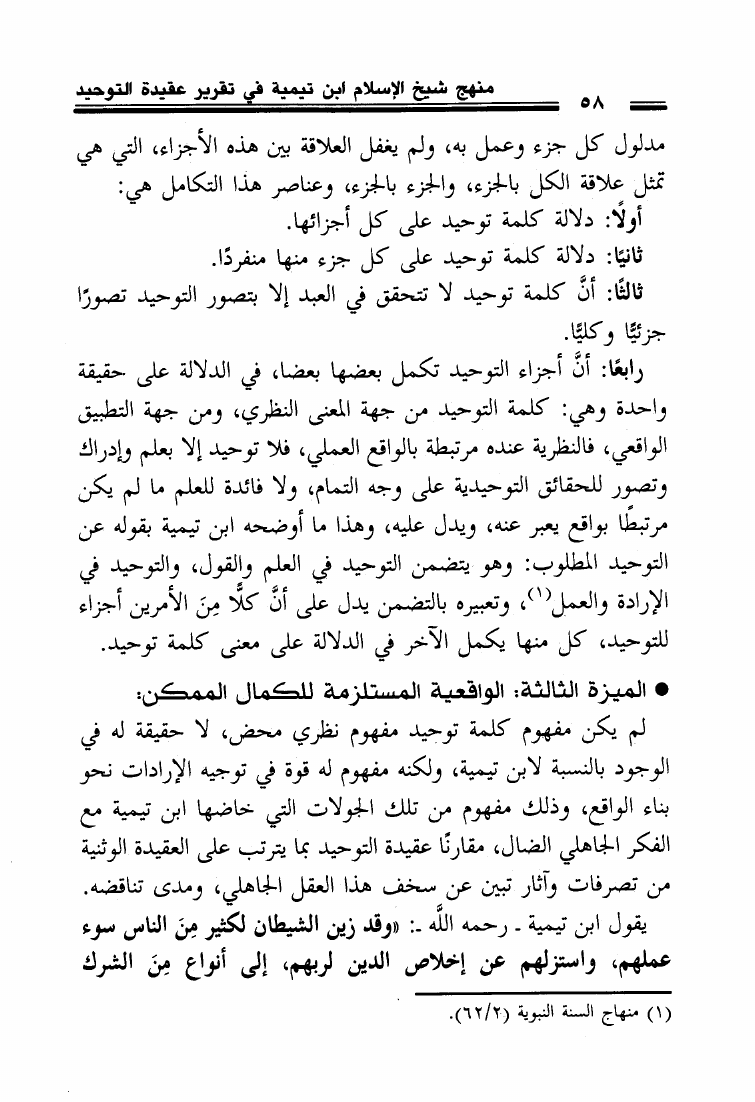 ٥٨ منهج شيخ الإسلام ابن تيمية في تقرير عقيدة التوحيد
مدلول كل جزء وعمل به، ولم يغفل العلاقة بين هذه الأجزاء، التي هي
تمثل علاقة الكل بالجزء، والجزء بالجزء، وعناصر هذا التكامل هي:
أولًا: دلالة كلمة توحيد على كل أجزائها.
ثانيًا: دلالة كلمة توحيد على كل جزء منها منفردًا.
ثالثًا: أنَّ كلمة توحيد لا تتحقق في العبد إلا بتصور التوحيد تصورًا
جزئيًّا وكليًّا.
رابعًا: أنَّ أجزاء التوحيد تكمل بعضها بعضا، في الدلالة على حقيقة
واحدة وهي: كلمة التوحيد من جهة المعنى النظري، ومن جهة التطبيق
الواقعي، فالنظرية عنده مرتبطة بالواقع العملي، فلا توحيد إلا بعلم وإدراك
وتصور للحقائق التوحيدية على وجه التمام، ولا فائدة للعلم ما لم يكن
مرتبطًا بواقع يعبر عنه، ويدل عليه، وهذا ما أوضحه ابن تيمية بقوله عن
التوحيد المطلوب: وهو يتضمن التوحيد في العلم والقول، والتوحيد في
الإرادة والعمل(١)، وتعبيره بالتضمن يدل على أنَّ كلًّا مِنَ الأمرين أجزاء
للتوحيد، كل منها يكمل الآخر في الدلالة على معنى كلمة توحيد.
● الميزة الثالثة: الواقعية المستلزمة للكمال الممكن:
لم يكن مفهوم كلمة توحيد مفهوم نظري محض، لا حقيقة له في
الوجود بالنسبة لابن تيمية، ولكنه مفهوم له قوة في توجيه الإرادات نحو
بناء الواقع، وذلك مفهوم من تلك الجولات التي خاضها ابن تيمية مع
الفكر الجاهلي الضال، مقارنًا عقيدة التوحيد بما يترتب على العقيدة الوثنية
من تصرفات وآثار تبين عن سخف هذا العقل الجاهلي، ومدى تناقضه.
يقول ابن تيمية ـ رحمه اللَّه ـ: «وقد زين الشيطان لكثير مِنَ الناس سوء
عملهم، واستزلهم عن إخلاص الدين لربهم، إلى أنواع مِنَ الشرك
(١) منهاج السنة النبوية (٦٢/٢).